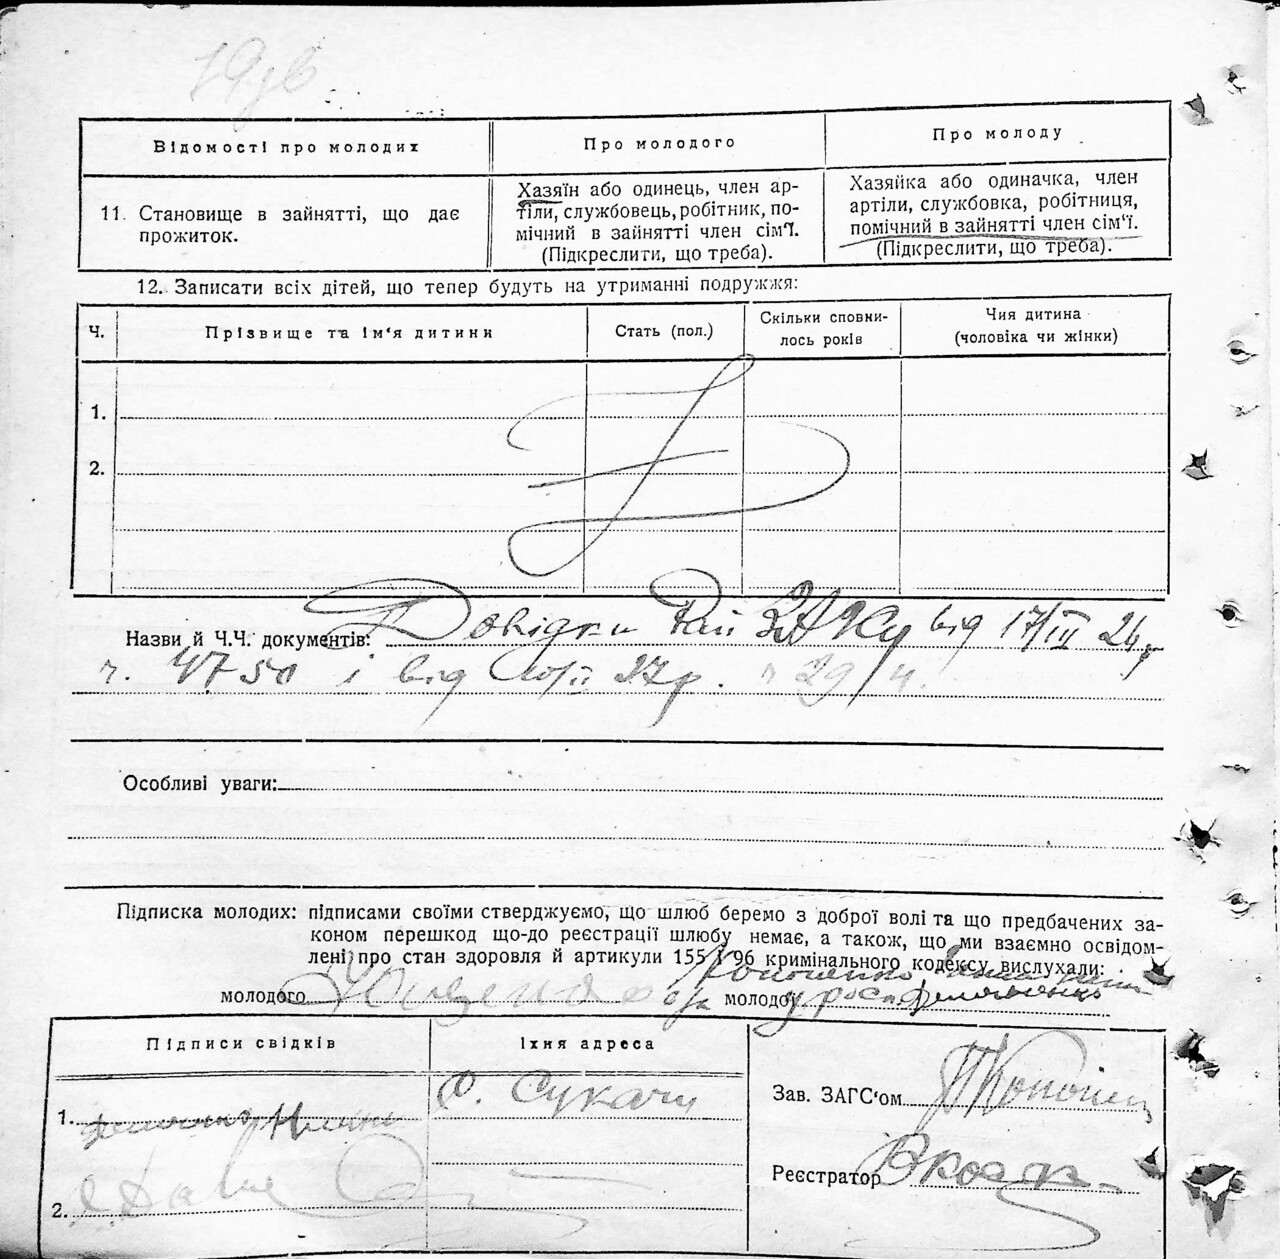 Відомості про молодих
Про молодого
Про молоду
11. Становище в зайнятті, що дає
прожиток.
Хазяїн або одинець, член ар-
тіли, службовець, робітник, по-
мічний в зайнятті член сім'ї.
(Підкреслити, що треба).
Хазяйка або одиначка, член
артіли, службовка, робітниця,
помічний в зайнятті член сім'ї.
(Підкреслити, що треба).
12. Записати всіх дітей, що тепер будуть на утриманні подружжя:
Ч.
Прізвище та ім'я дитини
Стать (пол.)
Скільки сповни-
лось років
Чия дитина
(чоловіка чи жінки)
1.
2.
Назви й Ч.Ч. документів: Довідки Рай ЗАГСу від 17/III 26 р
ч. 4750 і від 27р. 29/ч.
Особливі уваги:
Підписка молодих: підписами своїми стверджуємо, що шлюб беремо з доброї волі та що предбачених за-
коном перешкод що-до реєстрації шлюбу немає, а також, що ми взаємно освідом-
лені про стан здоровля й артикули 155 і 96 кримінального кодексу вислухали:
молодого
молодої
Підписи свідків
Їхня адреса
1.
С. Сукачи
2.
Зав. ЗАГС'ом
Реєстратор